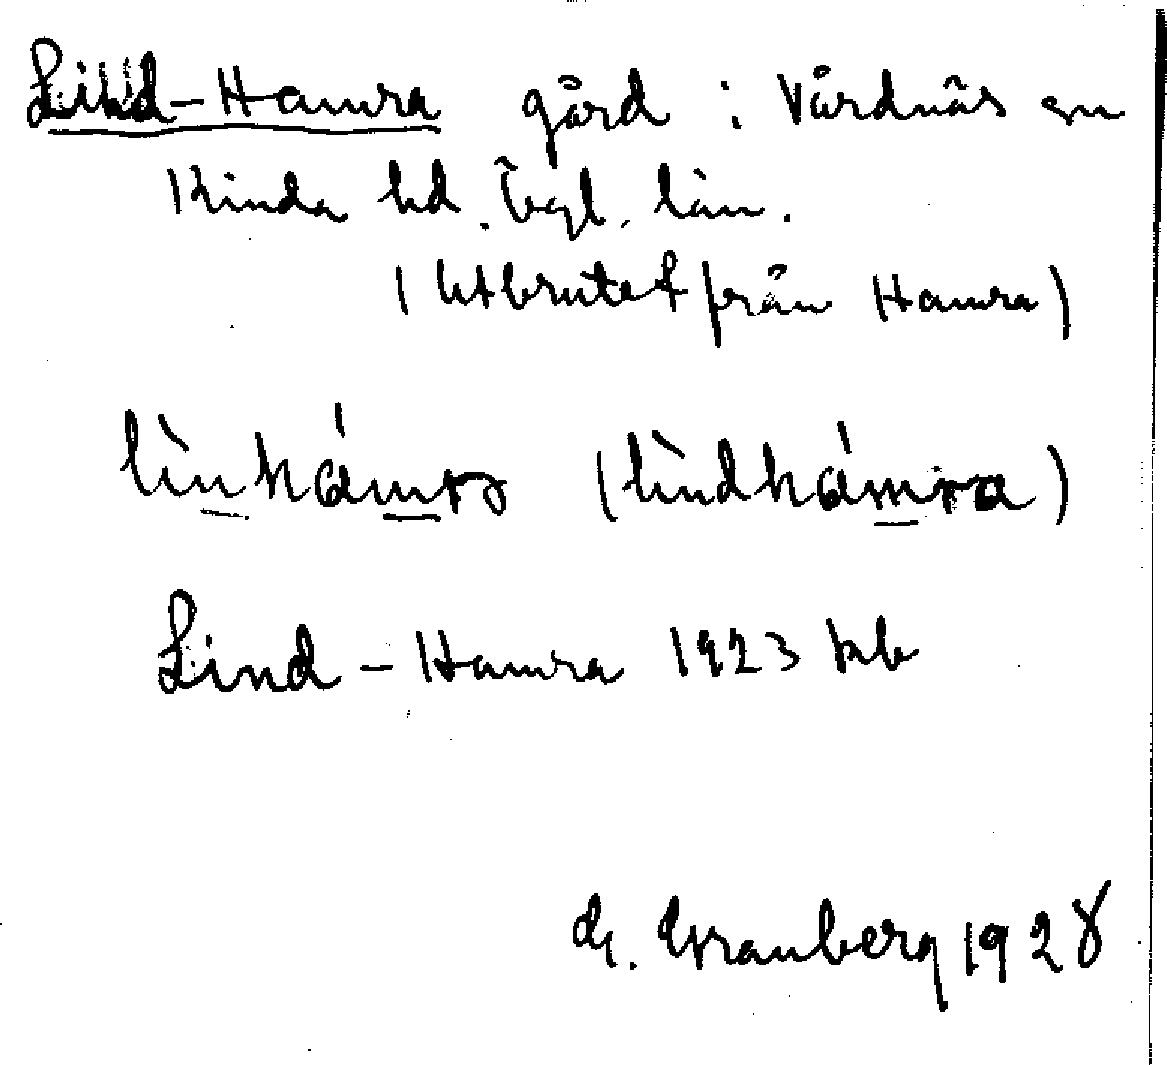 Lind-Hamra gård i Vårdnäs sn
Kinda hd. Ögl. län.
(Utbrutet från Hamra)
lìnhámrɒ (lìndhámra)
Lind-Hamra 1923 kb
G. Granberg 1928